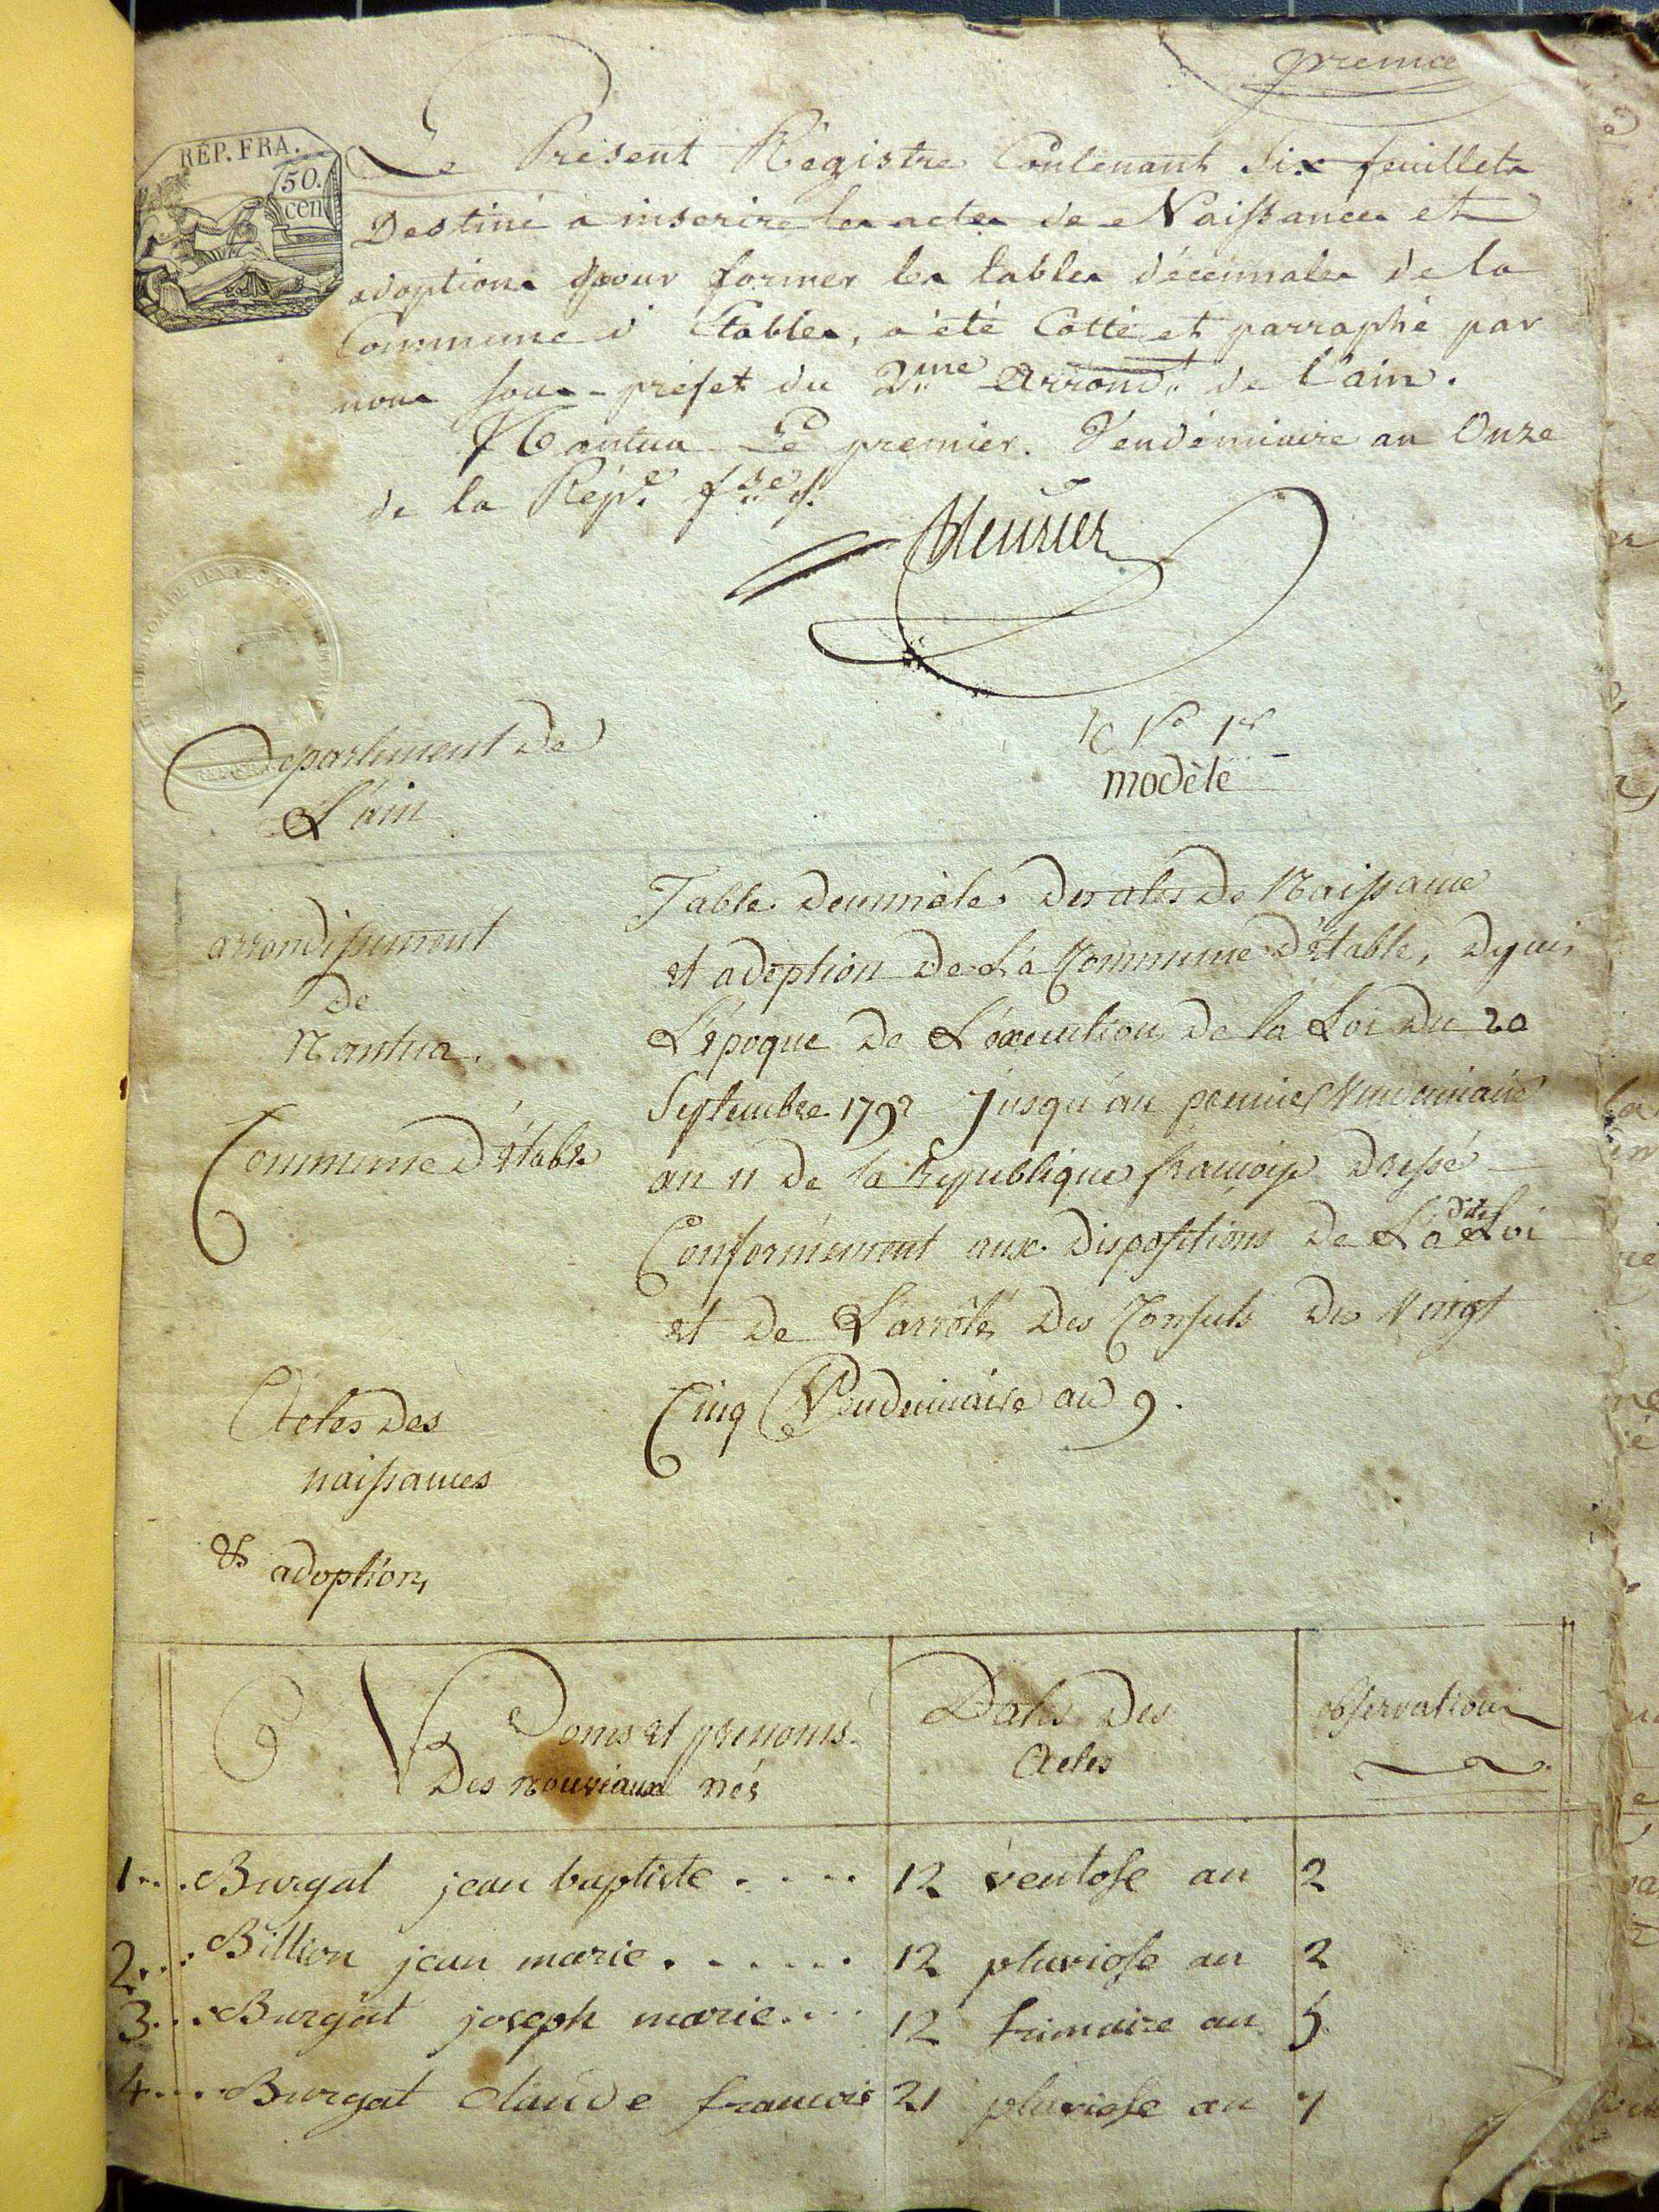 premier
RÉP. FRA.
50.
cen
Le Présent Régistre Contenant Six feuillets
Destiné à inscrire les actes de Naissances et
adoptions pour former les tables décennales de la
Commune d'Etables, a été Cotté et parraphé par
nous sous-préfet du 2me Arrondt de l'ain.
Nantua Le premier Vendémiaire an Onze
de la Répe fse
Département De
L'ain
No 1er
modèle
arrondissement
De
Nantua.
Commune D'étable
Actes Des
naissances
& adoptions
Table Decennale Des actes De Naissance
et adoption De La Commune D'étable, Depuis
L'époque De L'execution de la Loi Du 20
Septembre 1792 Jusqu'au premier Vendemiaire
an 11 De la Republique françoise Dressé
Conformément aux Dispositions De La dite Loi
et De L'arrêté Des Consuls Du Vingt
Cinq Vendemiaire an 9.
Noms et prenoms
Des nouveaux nés
Dates Des
Actes
observations
1... Burgat jean baptiste .... 12 ventose an 2
2... Billion jean marie ...... 12 pluviose an 2
3... Burgat joseph marie.... 12 frimaire an 5
4.... Burgat claude francois 21 pluviose an 7